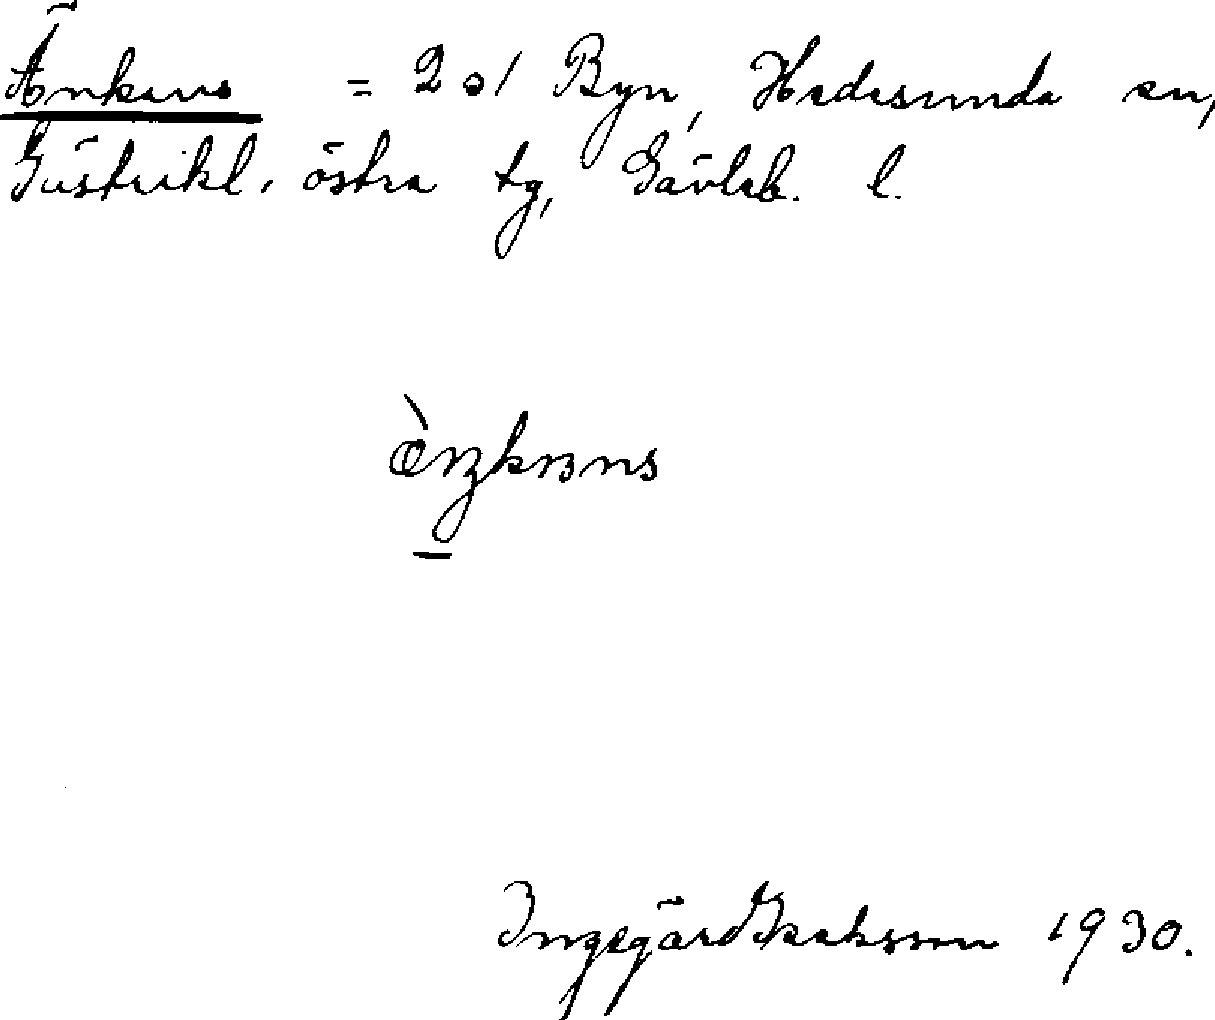 Änkans = 2⁰¹ Byn, Hedesunda sn,
Gästrikl. östra tg, Gävleb. l.
Ingegärd Isaksson 1930.